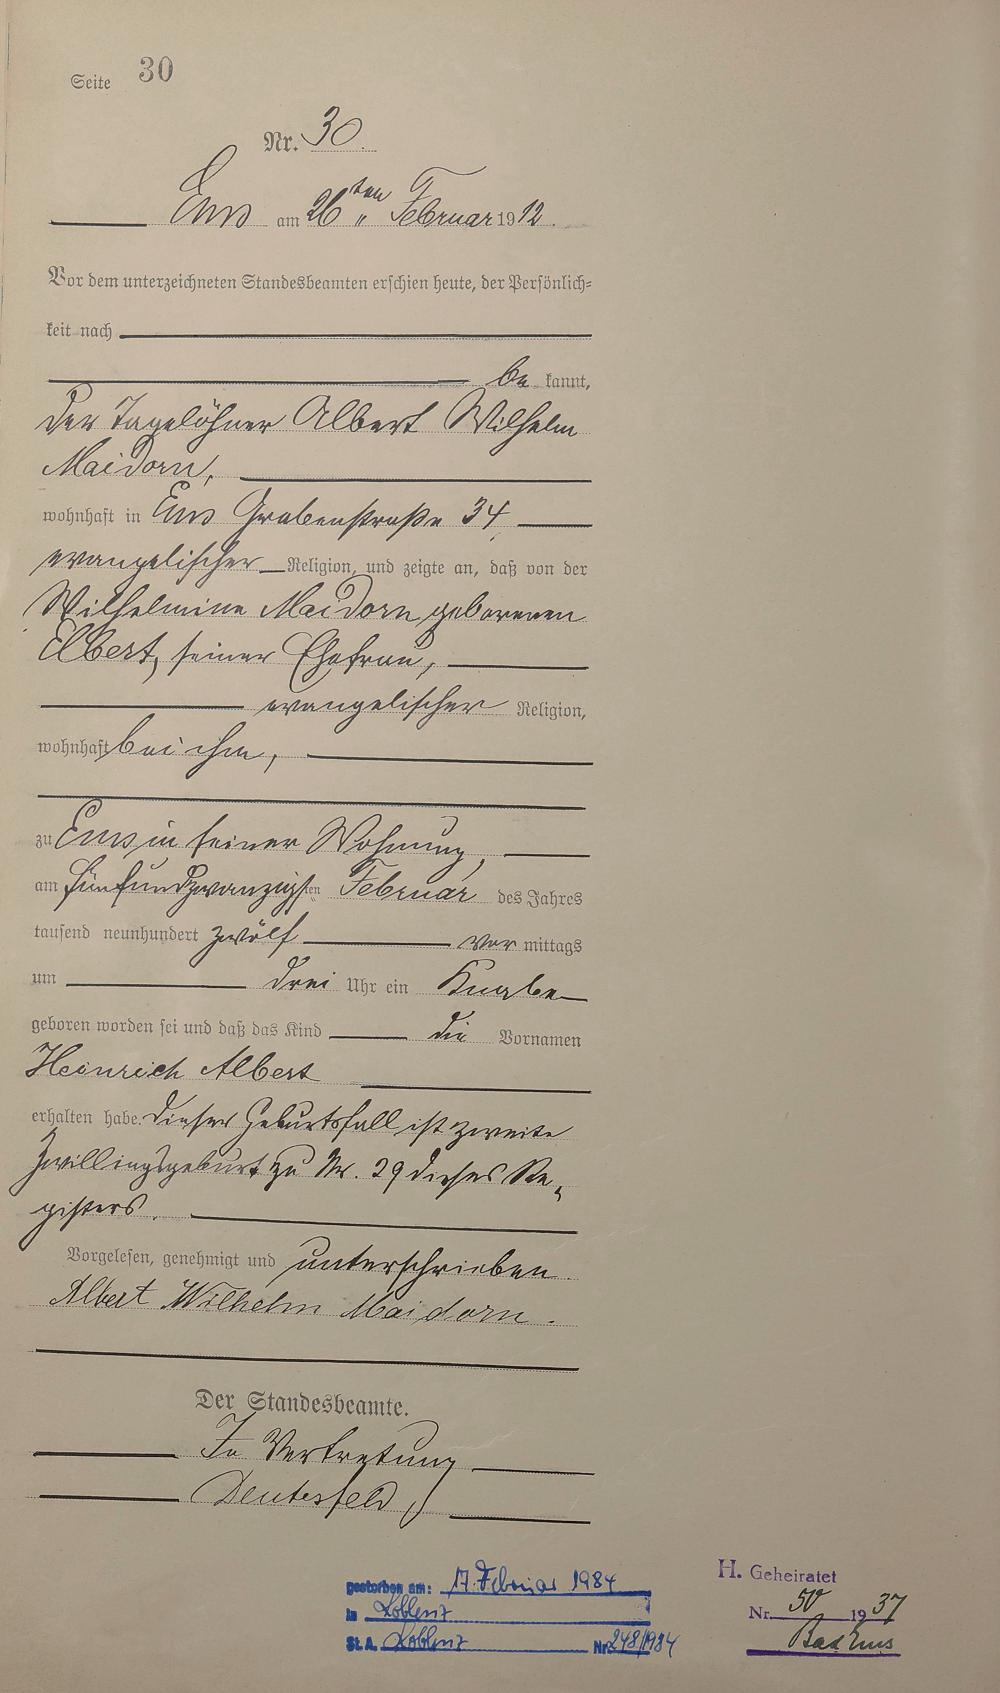 Seite 30
Nr. 30.
Ems am 26ten Februar 1912.
Vor dem unterzeichneten Standesbeamten erschien heute, der Persönlich-
keit nach
be kannt,
der Tagelöhner Albert Wilhelm
Maidorn,
wohnhaft in Ems Grabenstraße 34,
evangelischer Religion, und zeigte an, daß von der
Wilhelmine Maidorn geborenen
Elbert, seiner Ehefrau,
evangelischer Religion,
wohnhaft bei ihm,
zu Ems in seiner Wohnung,
am fünfundzwanzigsten Februar des Jahres
tausend neunhundert zwölf vor mittags
um drei Uhr ein Knabe
geboren worden sei und daß das Kind die Vornamen
Heinrich Albert
erhalten habe. Dieser Geburtsfall ist zweite
Zwillingsgeburt zu Nr. 29 dieses Re-
gisters.
Vorgelesen, genehmigt und unterschrieben.
Albert Wilhelm Maidorn.
Der Standesbeamte.
In Vertretung
Deutesfeld
gestorben am: 17. Februar 1984
in Koblenz
St.A. Koblenz Nr. 248/1984
H. Geheiratet
Nr. 50 1937
Bad Ems